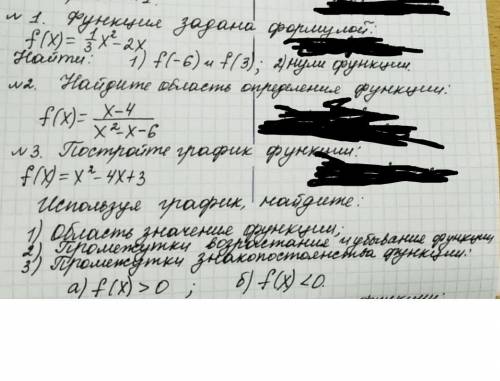 № 1. Функция задана формулой:
f(x)= 1/3 x² - 2x
Найти: 1) f(-6) и f(3); 2) нули функции.
№2. Найдите область определения функции:
f(x)= (x-4)/(x²-x-6)
№3. Постройте график функции:
f(x)= x²-4x+3
Используя график, найдите:
1) Область значение функции;
2) Промежутки возростание и убывание функции
3) Промежутки знакопостоянства функции:
а) f(x)>0 ; б) f(x)<0.